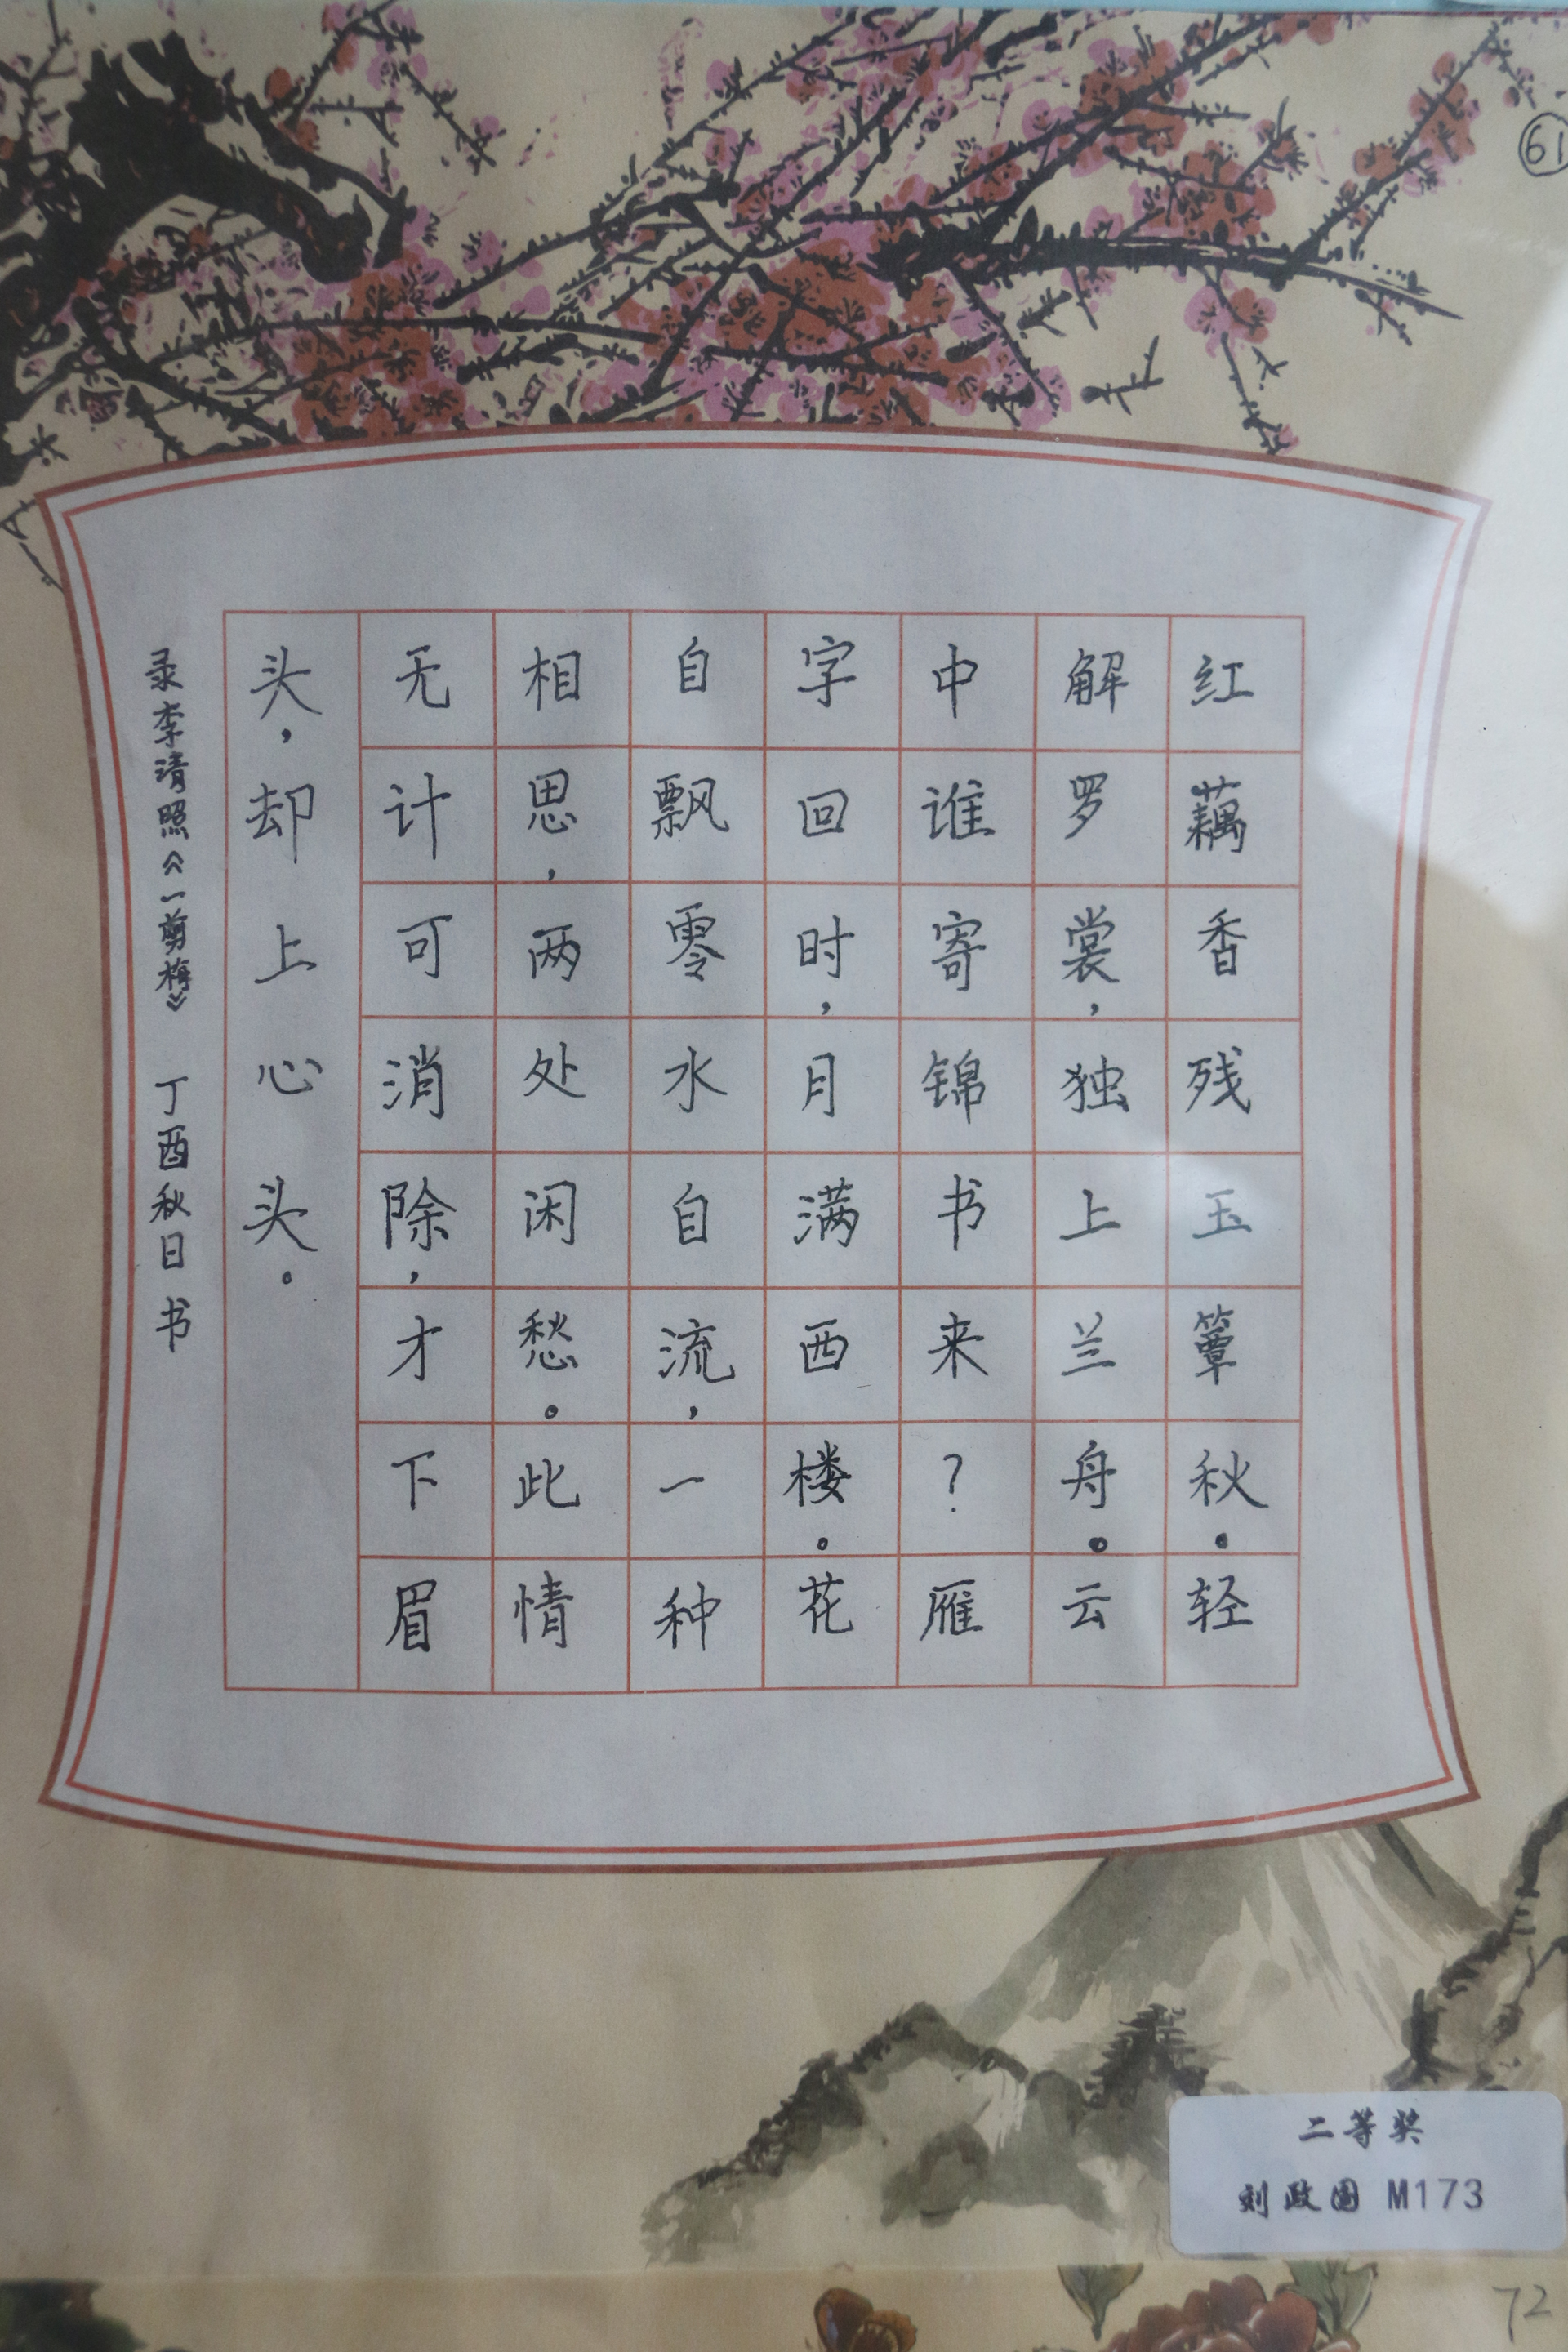 红藕香残玉簟秋。轻
解罗裳,独上兰舟。云
中谁寄锦书来?雁
字回时,月满西楼。花
自飘零水自流,一种
相思,两处闲愁。此情
无计可消除,才下眉
头,却上心头。
录李清照《一剪梅》 丁酉秋日书
61
二等奖
刘政图 M173
72